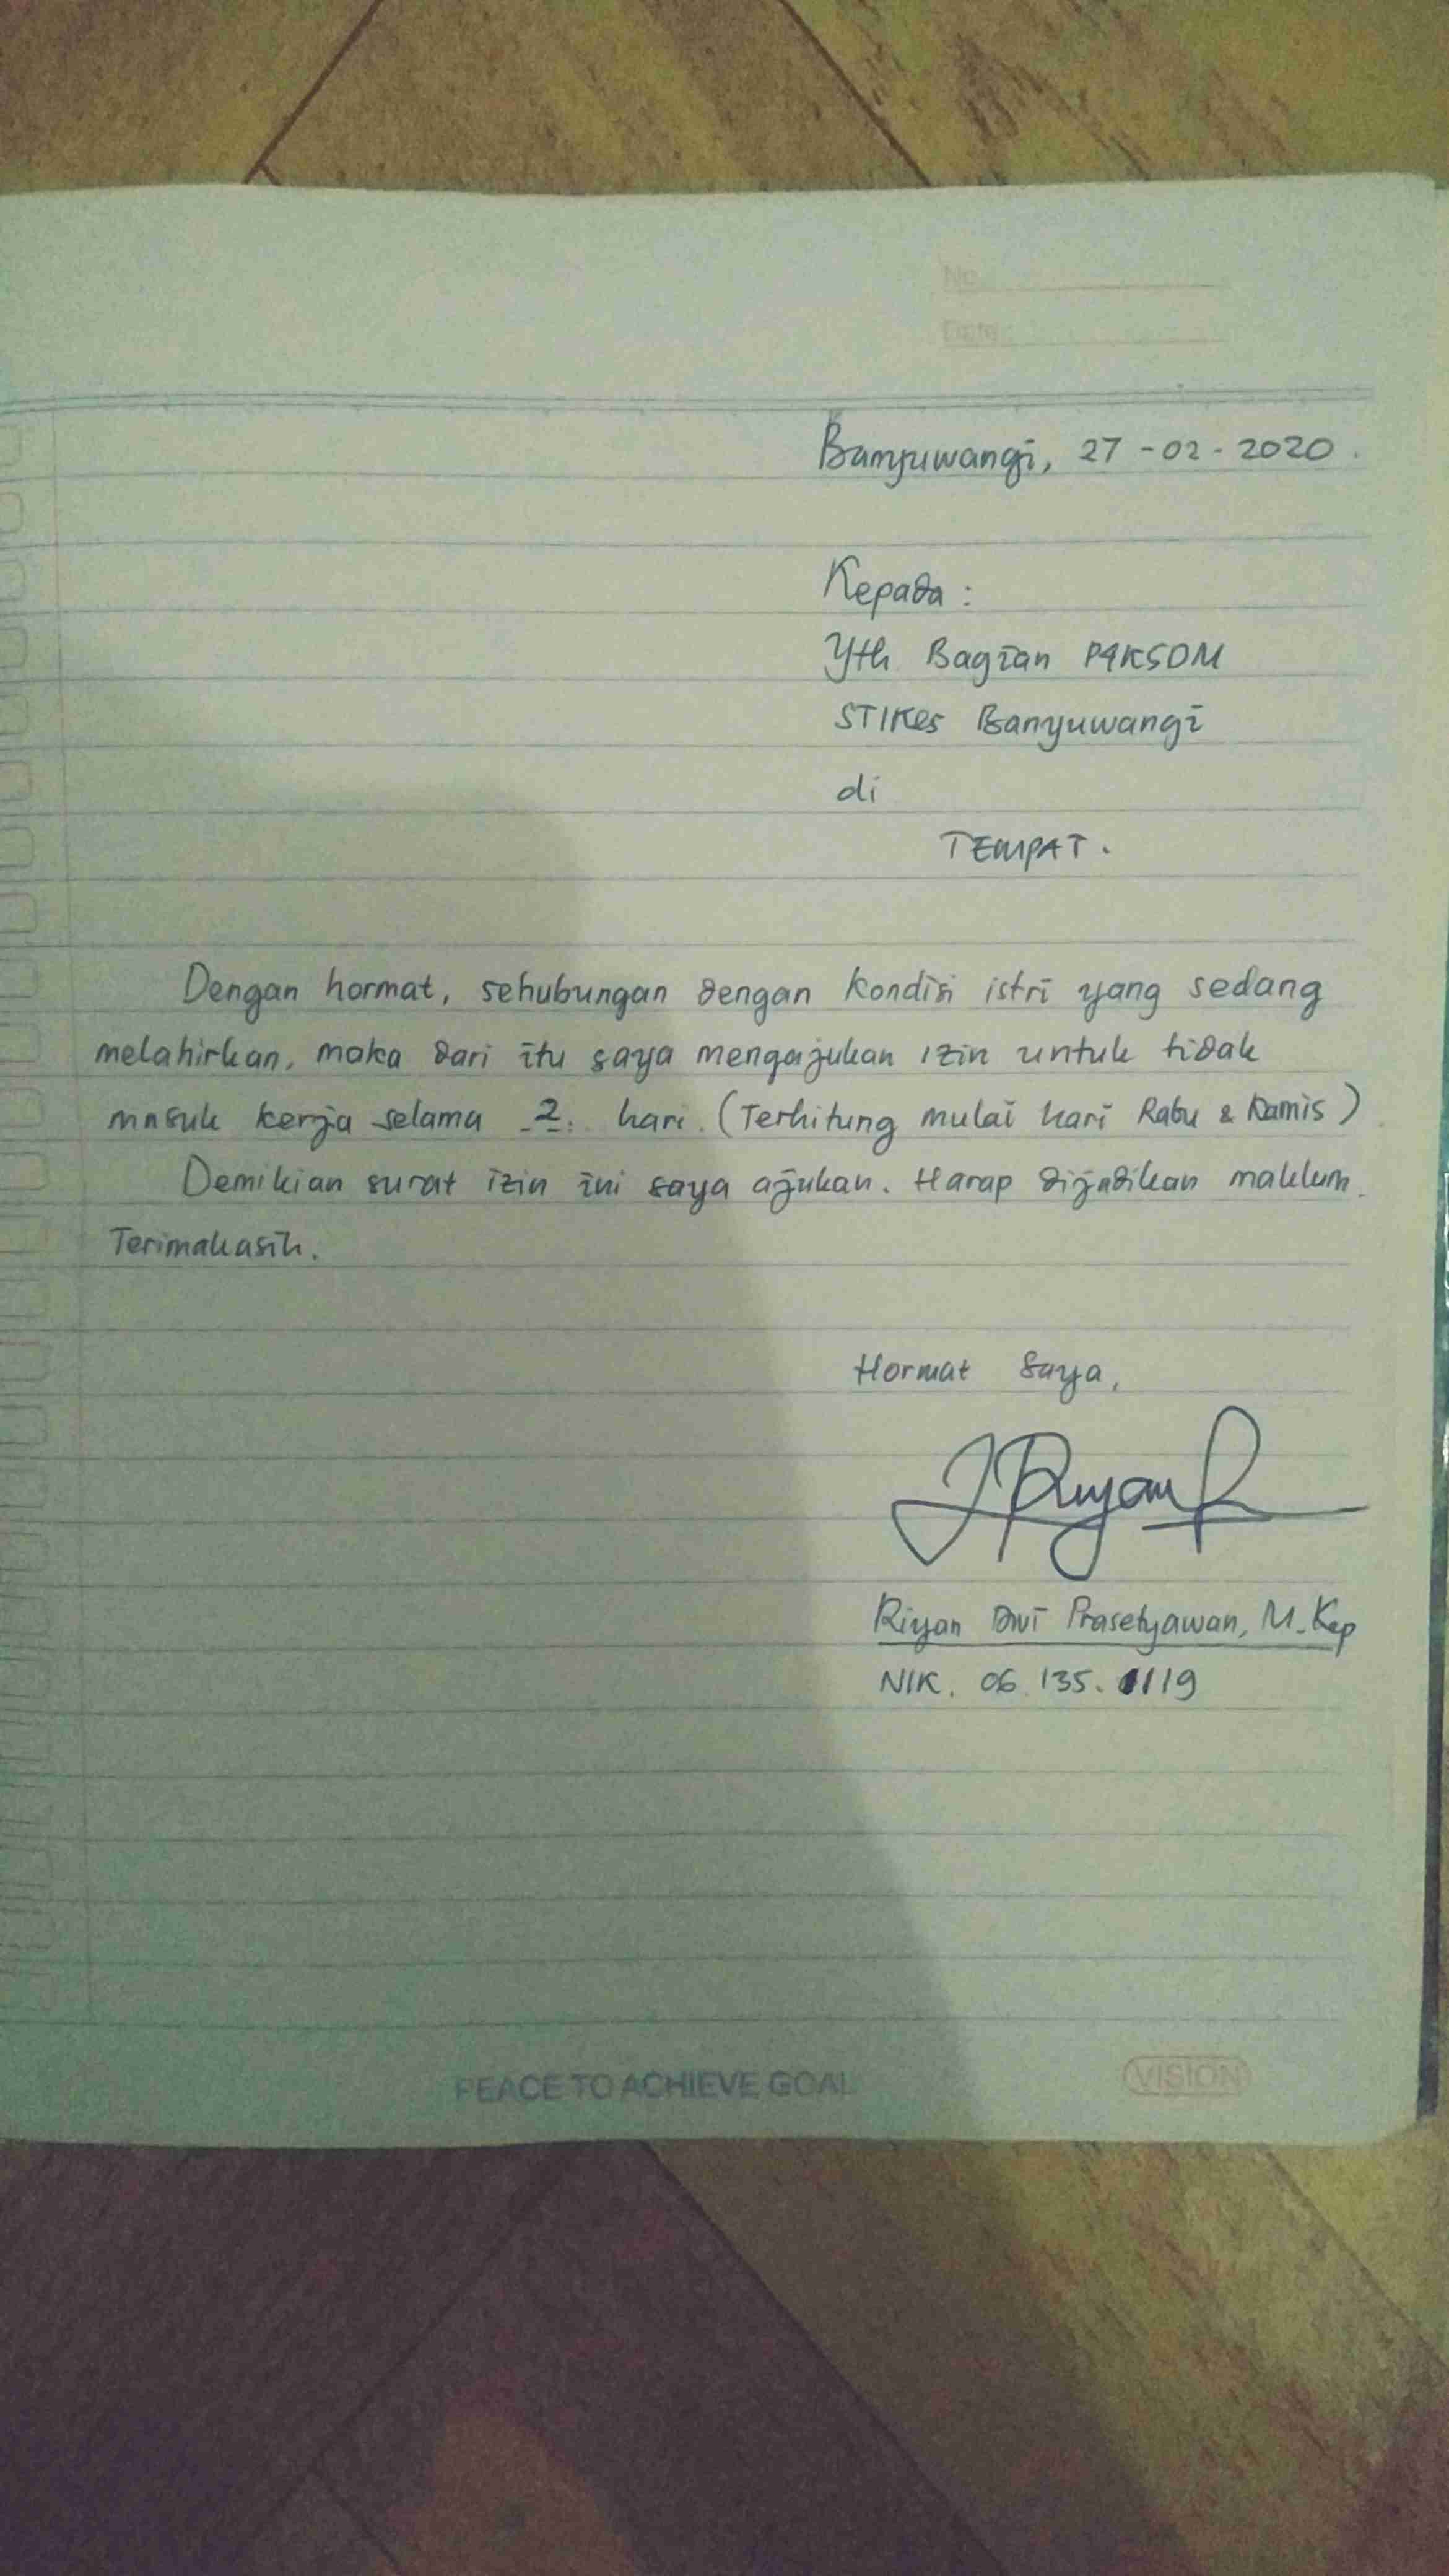 No
Date
Banyuwangi, 27-02-2020.
Kepada :
Yth Bagian P4KSDM
STIKes Banyuwangi
di
TEMPAT.
Dengan hormat, sehubungan dengan kondisi istri yang sedang
melahirkan, maka dari itu saya mengajukan izin untuk tidak
masuk kerja selama 2 hari. (Terhitung mulai hari Rabu & Kamis)
Demikian surat izin ini saya ajukan. Harap dijadikan maklum.
Terimakasih.
Hormat saya,
Riyan
Riyan Dwi Prasetyawan, M.Kep
NIK. 06.135.1119
PEACE TO ACHIEVE GOAL
VISION